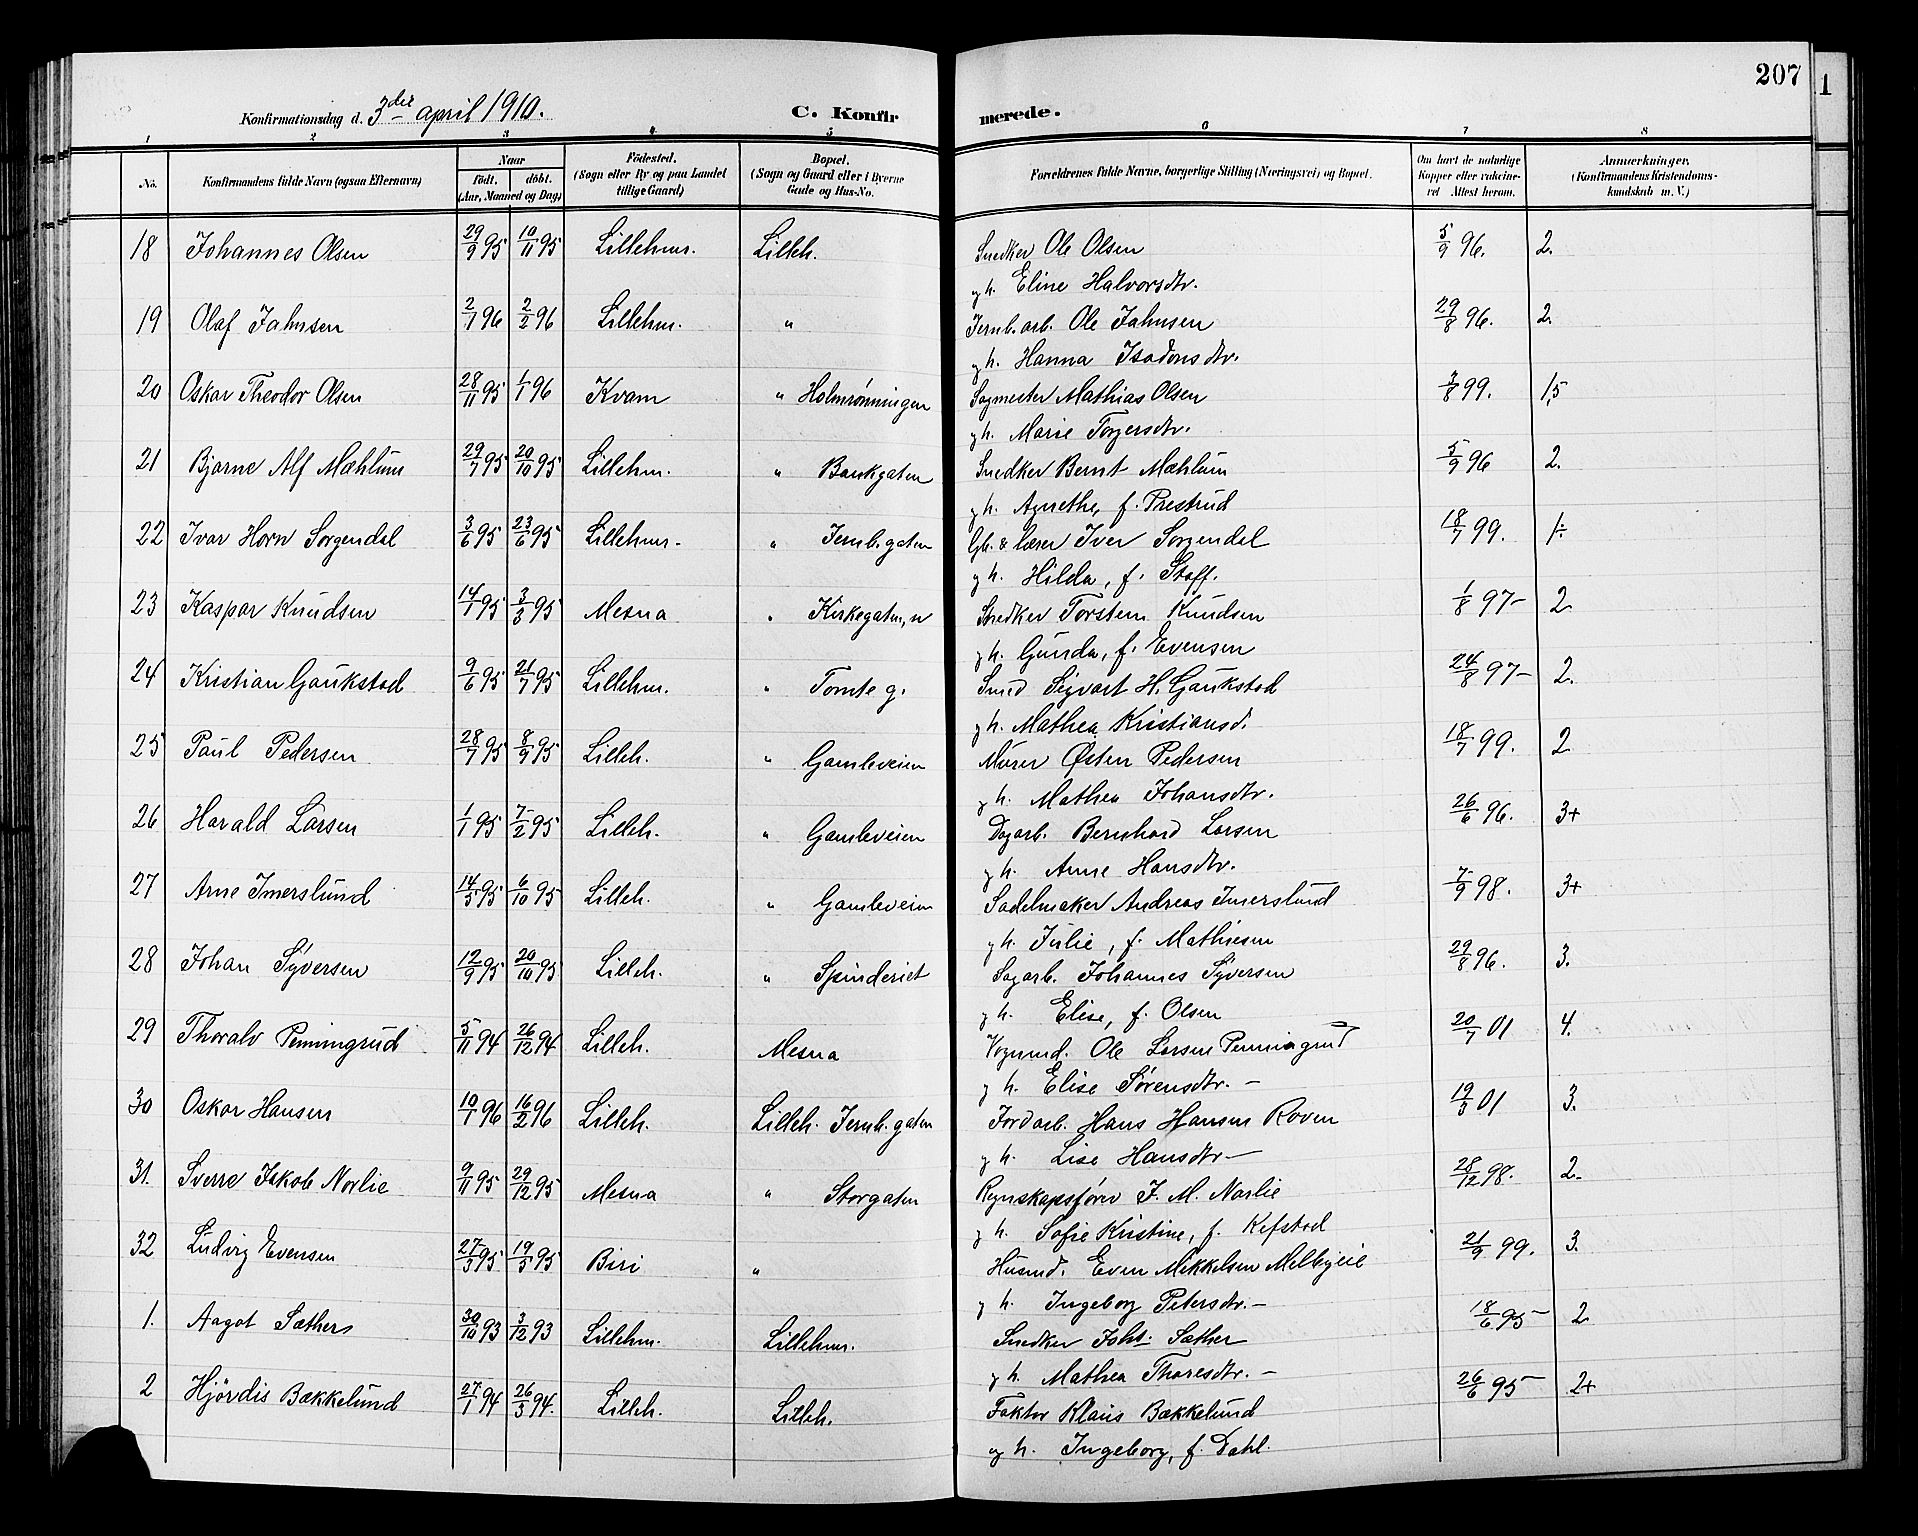 207
1
Konfirmationsdag d. 3die april 1910.
C. Konfirmerede.
1 2 3 4 5 6 7 8
No.
Konfirmandens fulde Navn (ogsaa Efternavn)
Naar
født. døbt.
(Aar, Maaned og Dag)
Fødested.
(Sogn eller By og paa Landet
tillige Gaard)
Bopæl.
(Sogn og Gaard eller i Byerne
Gade og Hus-No.
Forældrenes fulde Navne, borgerlige Stilling (Næringsvei) og Bopæl.
Om havt de naturlige
Kopper eller vakcine-
ret Attest herom.
Anmærkninger.
(Konfirmandens Kristendoms-
kundskab m. V.)
18 Johannes Olsen 29/9 95 10/11 95 Lillehmr. Lilleh. Snedker Ole Olsen 5/9 96. 2.
g h. Eline Halvorsdtr.
19 Olaf Jahnsen 2/1 96 2/2 96 Lillehm. " Jernb.arb. Ole Jahnsen 29/8 96. 2.
g h. Hanna Isadorsdtr.
20 Oskar Theodor Olsen 28/11 95 1/1 96 Kvam " Holmrønningen Sagmester Mathias Olsen 3/8 99. 1,5
g h. Marie Torgersdtr.
21 Bjarne Alf Mæhlum 29/7 95 20/10 95 Lillehm. " Bankgaten Snedker Bernt Mæhlum 5/9 96 2.
g h. Agnethe, f. Prestrud
22 Ivar Horn Sorgendal 3/6 95 23/6 95 Lillehmr. " Jernb.gaten Gb. & lærer Iver Sorgendal 18/7 99. 1÷
g h. Hilda, f. Staff.
23 Kaspar Knudsen 14/1 95 3/3 95 Mesna " Kirkegaten, n Snedker Torsten Knudsen 1/8 97- 2.
g h. Gunda, f. Evensen
24 Kristian Gaukstad 9/6 95 21/7 95 Lillehm. " Tomte g. Smed Sigvart H. Gaukstad 24/8 97- 2.
g h. Mathea Kristiansd.
25 Paul Pedersen 28/7 95 8/9 95 Lilleh. " Gamleveien Murer Østen Pedersen 18/7 99. 2
g h. Mathea Johansdtr.
26 Harald Larsen 1/1 95 7/2 95 Lilleh. " Gamleveien Dagarb. Bernhard Larsen 26/6 96. 3+
g h. Anne Hansdtr.
27 Arne Imerslund 14/5 95 6/10 95 Lilleh. " Gamleveien Sadelmaker Andreas Imerslund 7/9 98. 3+
g h. Julie, f. Mathiesen
28 Johan Syversen 12/9 95 20/10 95 Lilleh. " Spinderiet Sagarb. Johannes Syversen 29/8 96. 3.
g h. Elise, f. Olsen
29 Thoralv Penningrud 5/11 94 26/12 94 Lilleh. Mesna Vognmd. Ole Larsen Penningrud 20/7 01 4.
g h. Elise Sørensdtr. -
30 Oskar Hansen 10/1 96 16/2 96 Lilleh. Lilleh. Jernb.gaten Jordarb. Hans Hansen Roven 19/3 01 3.
g h. Lise Hansdtr -
31. Sverre Jakob Norlie 9/11 95 29/12 95 Mesna " Storgaten Regnskapsfører J. M. Norlie 28/12 98. 2.
g h. Sofie Kristine, f. Kefstad
32 Ludvig Evensen 27/3 95 19/5 95 Biri " Husmd. Even Mikkelsen Melbyeie 21/9 99. 3.
g h. Ingeborg Petersdtr. -
1. Aagot Sæthers 30/10 93 3/12 93 Lillehm. Lillehmr. Snedker Johs. Sæther 18/6 95- 2
g h. Mathea Thoresdtr. -
2 Hjördis Bækkelund 27/1 94 26/3 94. Lilleh. Lilleh. Faktor Klaus Bækkelund 26/6 95- 2+
og h. Ingeborg, f. Dahl.